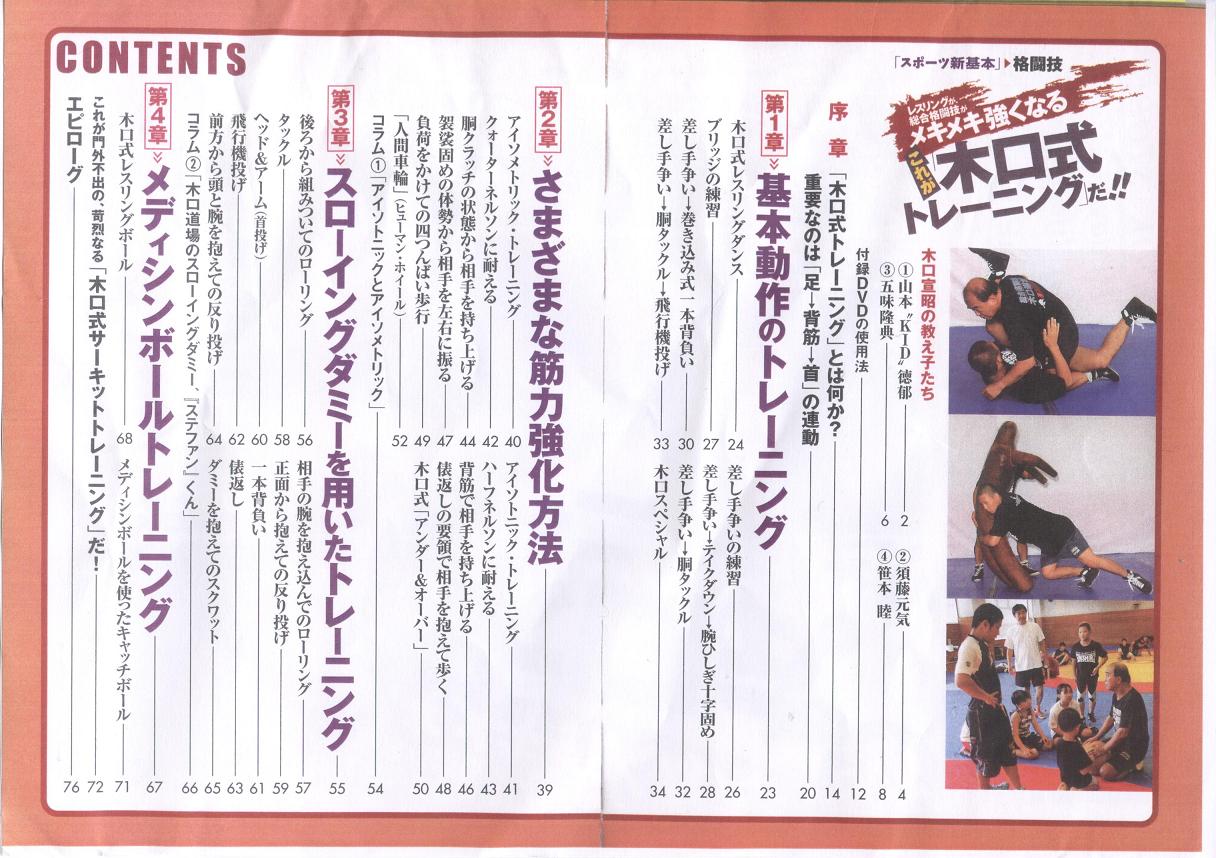 CONTENTS
「スポーツ新基本」▶格闘技
レスリングが、
総合格闘技が
メキメキ強くなる
これが
「木口式
トレーニング」だ!!
木口宣昭の教え子たち
①山本“KID”徳郁 2
②須藤元気 4
③五味隆典 6
④笹本 睦 8
付録DVDの使用法 12
序章 「木口式トレーニング」とは何か? 14
重要なのは「足→背筋→首」の連動 20
第1章 基本動作のトレーニング 23
木口式レスリングダンス 24
差し手争いの練習 26
ブリッジの練習 27
差し手争い→テイクダウン→腕ひしぎ十字固め 28
差し手争い→巻き込み式一本背負い 30
差し手争い→胴タックル 32
差し手争い→胴タックル→飛行機投げ 33
木口スペシャル 34
第2章 さまざまな筋力強化方法 39
アイソメトリック・トレーニング 40
アイソトニック・トレーニング 41
クォーターネルソンに耐える 42
ハーフネルソンに耐える 43
胴クラッチの状態から相手を持ち上げる 44
背筋で相手を持ち上げる 46
袈裟固めの体勢から相手を左右に振る 47
俵返しの要領で相手を抱えて歩く 48
負荷をかけての四つんばい歩行 49
木口式「アンダー&オーバー」 50
「人間車輪」(ヒューマン・ホイール) 52
コラム①「アイソトニックとアイソメトリック」 54
第3章 スローイングダミーを用いたトレーニング 55
後ろから組みついてのローリング 56
相手の腕を抱え込んでのローリング 57
タックル 58
正面から抱えての反り投げ 59
ヘッド&アーム(首投げ) 60
一本背負い 61
飛行機投げ 62
俵返し 63
前方から頭と腕を抱えての反り投げ 64
ダミーを抱えてのスクワット 65
コラム②「木口道場のスローイングダミー、『ステファン』くん」 66
第4章 メディシンボールトレーニング 67
木口式レスリングボール 68
メディシンボールを使ったキャッチボール 71
これが門外不出の、苛烈なる「木口式サーキットトレーニング」だ! 72
エピローグ 76